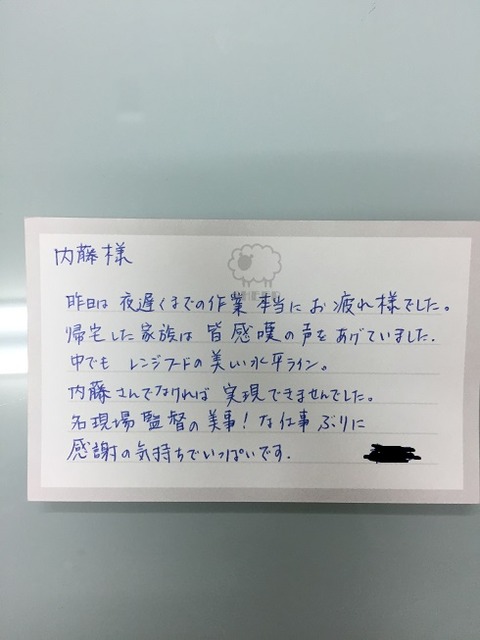 内藤様
昨日は夜遅くまでの作業本当にお疲れ様でした。
帰宅した家族は皆感嘆の声をあげていました.
中でもレンジフードの美しい水平ライン。
内藤さんでなければ実現できませんでした。
名現場監督の美事!な仕事ぶりに
感謝の気持ちでいっぱいです.